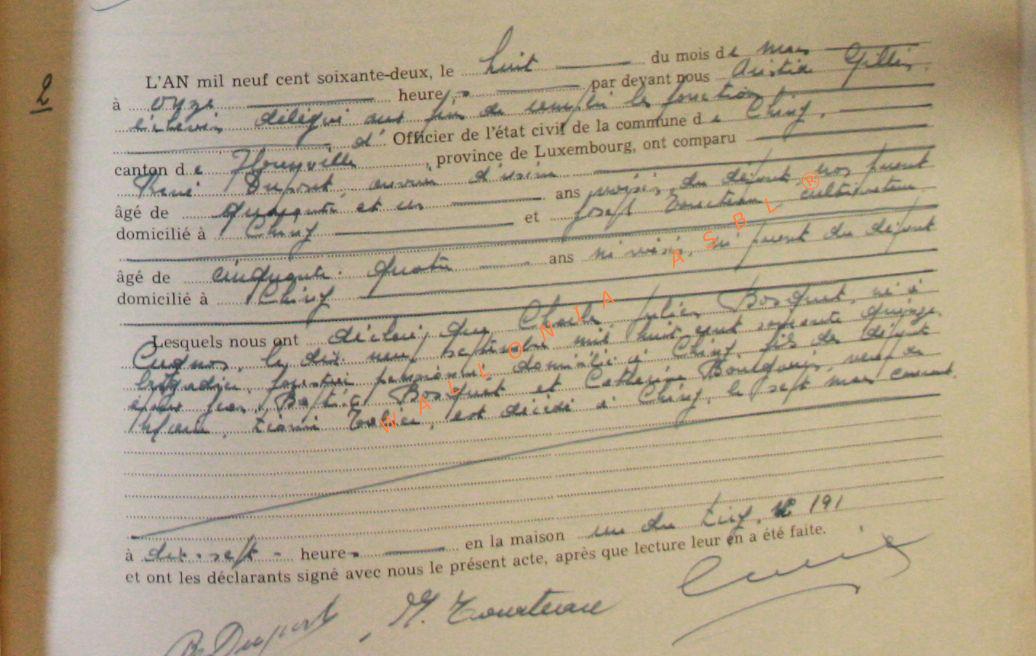 2
L'AN mil neuf cent soixante-deux, le huit du mois de mars
à onze heures par devant nous Aristide Gillis,
échevin délégué aux fins de remplir la fonction
d' Officier de l'état civil de la commune de Chiny,
canton de Florenville, province de Luxembourg, ont comparu
René Dupont, ouvrier d'usine
âgé de quarante et un ans voisin du défunt, non parent
domicilié à Chiny et Joseph cultivateur
âgé de cinquante-quatre ans ni voisin, ni parent du défunt
domicilié à Chiny
Lesquels nous ont déclaré que Charles Julien Bosquet, né à
Cugnon, le dix-neuf septembre mil huit cent soixante quinze
brigadier forestier pensionné domicilié à Chiny, fils des défunts
époux Jean Baptiste Bosquet et Catherine veuf de
est décédé à Chiny, le sept mars courant
à dix-sept heures en la maison rue du 191
et ont les déclarants signé avec nous le présent acte, après que lecture leur en a été faite.
R. Dupont
WALLONIA ASBL ®